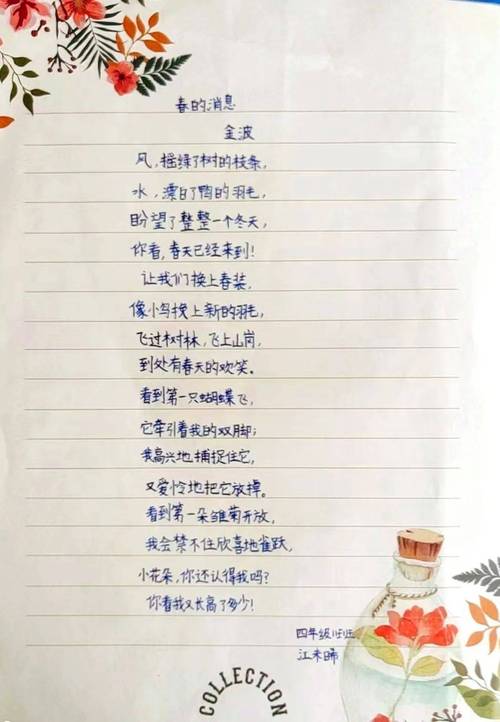 春的消息
金波
风，摇绿了树的枝条，
水，漂白了鸭的羽毛，
盼望了整整一个冬天，
你看，春天已经来到！
让我们换上春装，
像小鸟换上新的羽毛，
飞过树林，飞上山岗，
到处有春天的欢笑。
看到第一只蝴蝶飞，
它牵引着我的双脚；
我高兴地捕捉住它，
又爱怜地把它放掉。
看到第一朵雏菊开放，
我会禁不住欣喜地雀跃，
小花朵，你还认得我吗？
你看我又长高了多少！
四年级
江未晞
COLLECTION